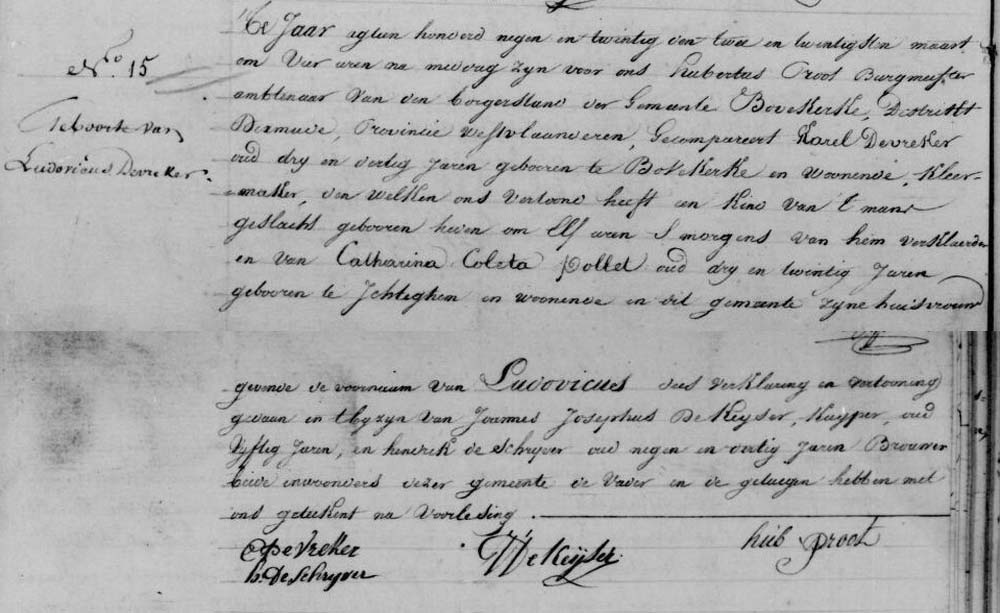 N.º 15
Geboorte van
Ludovicus Devreker.
'T Jaar agtien honderd negen en twintig den twee en twintigsten maart
om Vier uren na middag zyn voor ons hubertus Proot Burgmeester
ambtenaar Van den borgerstand der Gemeente Bovekerke, Destrikt
Dixmude, Provincie Westvlaanderen, Gecompareert Karel Devreker
oud dry en dertig Jaren gebooren te Bovekerke en woonende, Kleer-
maker, den welken ons vertoond heeft een Kind van 't mans
geslacht gebooren heden om Elf uren S morgens van hem verklaerder
en van Catharina Coleta Pollet oud dry en twintig Jaren
gebooren te Ichteghem en woonende in dit gemeente zyne huisvrouw
gevende de voornaam van Ludovicus dees verklaring en vertooning
gedaan in t byzyn van Joannes Josephus DeKeyser, Kuyper, oud
Vyftig Jaren, en hendrik de Schryver oud negen en dertig Jaren Brouwer
beide inwoonders dezer gemeente de Vader en de getuigen hebben met
ons geteekent na Voorlesing.
Devreker
DeKeyser
hub Proot
h. DeSchryver